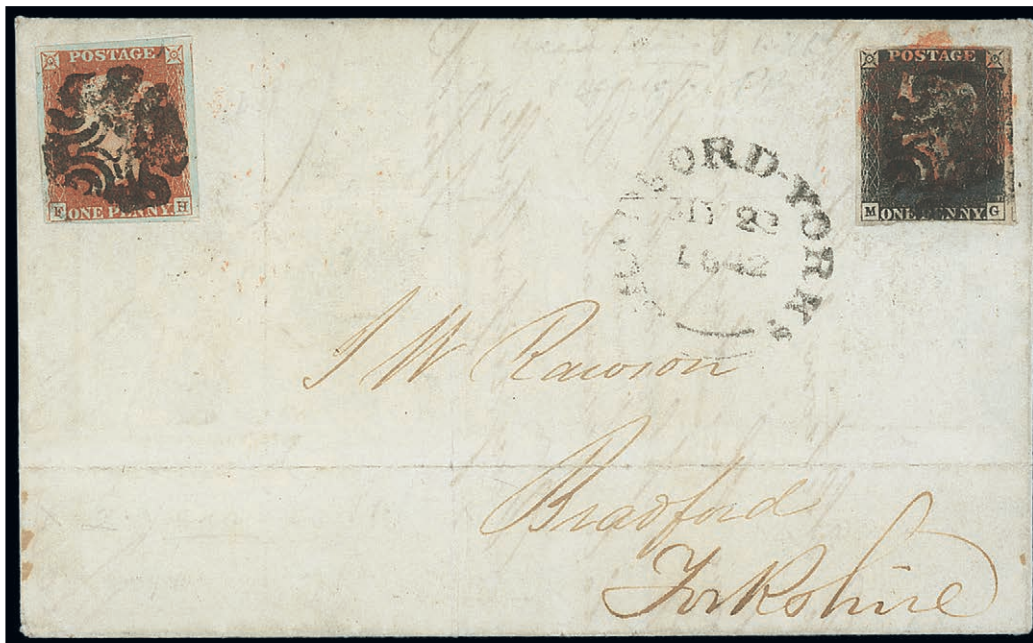 POSTAGE
F ONE PENNY H
POSTAGE
M ONE PENNY G
BRADFORD-YORKS
MY 22
1842
J W Rawson
Bradford
Yorkshire